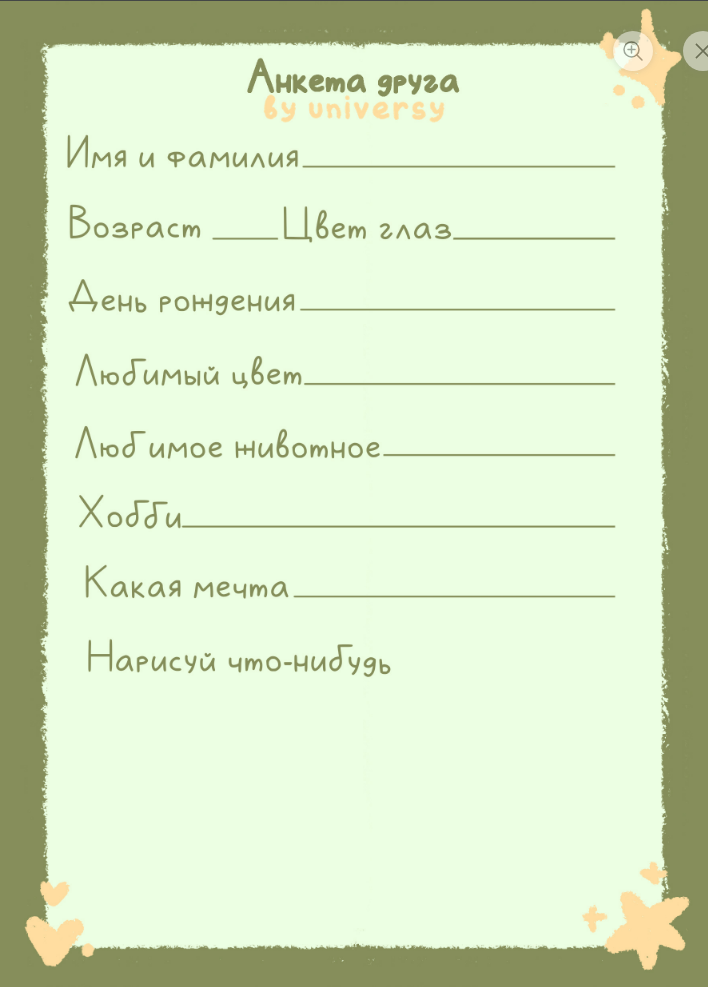 Анкета друга
by universy
Имя и фамилия
Возраст Цвет глаз
День рождения
Любимый цвет
Любимое животное
Хобби
Какая мечта
Нарисуй что-нибудь